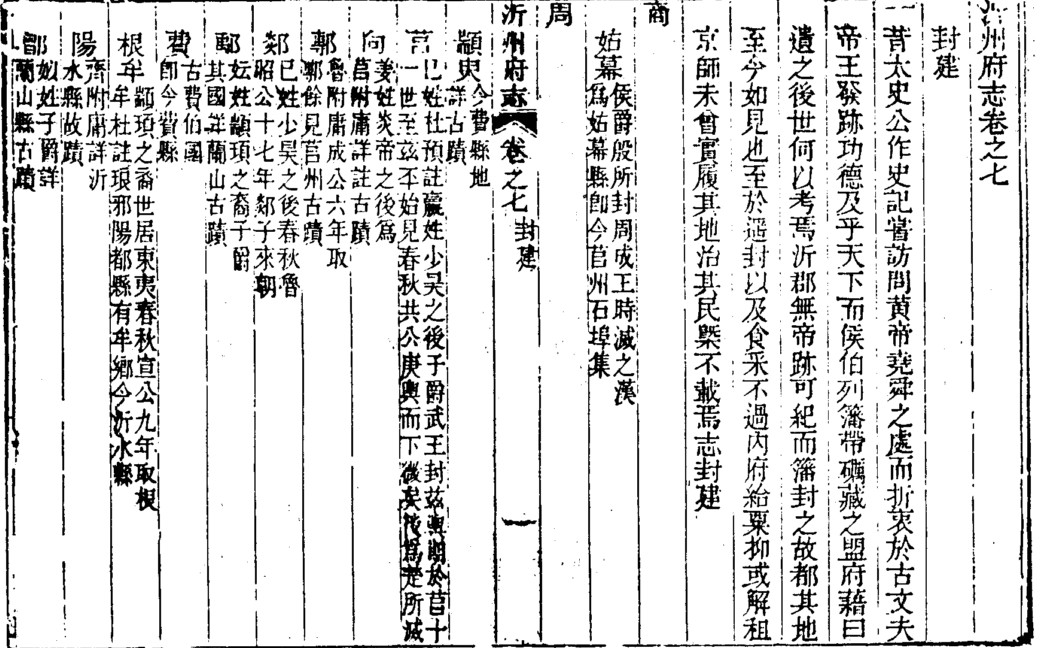 沂州府志卷之七
封建
昔太史公作史記嘗訪問黄帝堯舜之處而折衷於古文夫
帝王發跡功德及乎天下而侯伯列籓帶礪藏之盟府藉曰
遺之後世何以考焉沂郡無帝跡可紀而籓封之故都其地
至今如見也至於遥封以及食采不過内府給粟抑或解租
京師未曾實履其地治其民槩不載焉志封建
商
姑幕侯爵殷所封周成王時滅之漢
爲姑幕縣卽今莒州石埠集
周
沂州府志 卷之七 封建 一
顓臾今費縣地
詳古蹟
莒巳姓杜預註嬴姓少昊之後子爵武王封兹輿期於莒十
一世至兹丕始見春秋共公庚輿而下微矣後爲楚所滅
向姜姓炎帝之後爲
莒附庸詳註古蹟
鄣魯附庸成公六年取
鄣餘見莒州古蹟
郯巳姓少昊之後春秋魯
昭公十七年郯子來朝
鄅妘姓顓頊之裔子爵
其國詳蘭山古蹟
費古費伯國
卽今費縣
根牟顓頊之裔世居東夷春秋宣公九年取根
牟杜註琅邪陽都縣有牟鄉今沂水縣
陽齊附庸詳沂
水縣故蹟
鄫姒姓子爵詳
蘭山縣古蹟